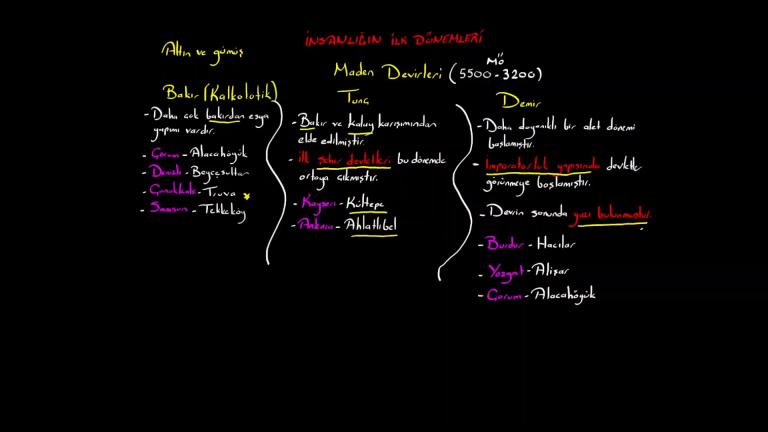 İNSANLIĞIN İLK DÖNEMLERİ
Altın ve gümüş
MÖ
Maden Devirleri (5500-3200)
Bakır (Kalkolotik)
- Daha çok bakırdan eşya
yapımı vardır.
- Çorum - Alacahöyük
- Denizli - Beycesultan
- Çanakkale - Truva
- Samsun - Tekkeköy
Tunç
- Bakır ve kalay karışımından
elde edilmiştir.
- İlk şehir devletleri bu dönemde
ortaya çıkmıştır.
- Kayseri - Kültepe
- Ankara - Ahlatlıbel
Demir
- Daha dayanıklı bir alet dönemi
başlamıştır.
- İmparatorluk yapısında devletler
görünmeye başlamıştır.
- Devrin sonunda yazı bulunmuştur.
- Burdur - Hacılar
- Yozgat - Alişar
- Çorum - Alacahöyük